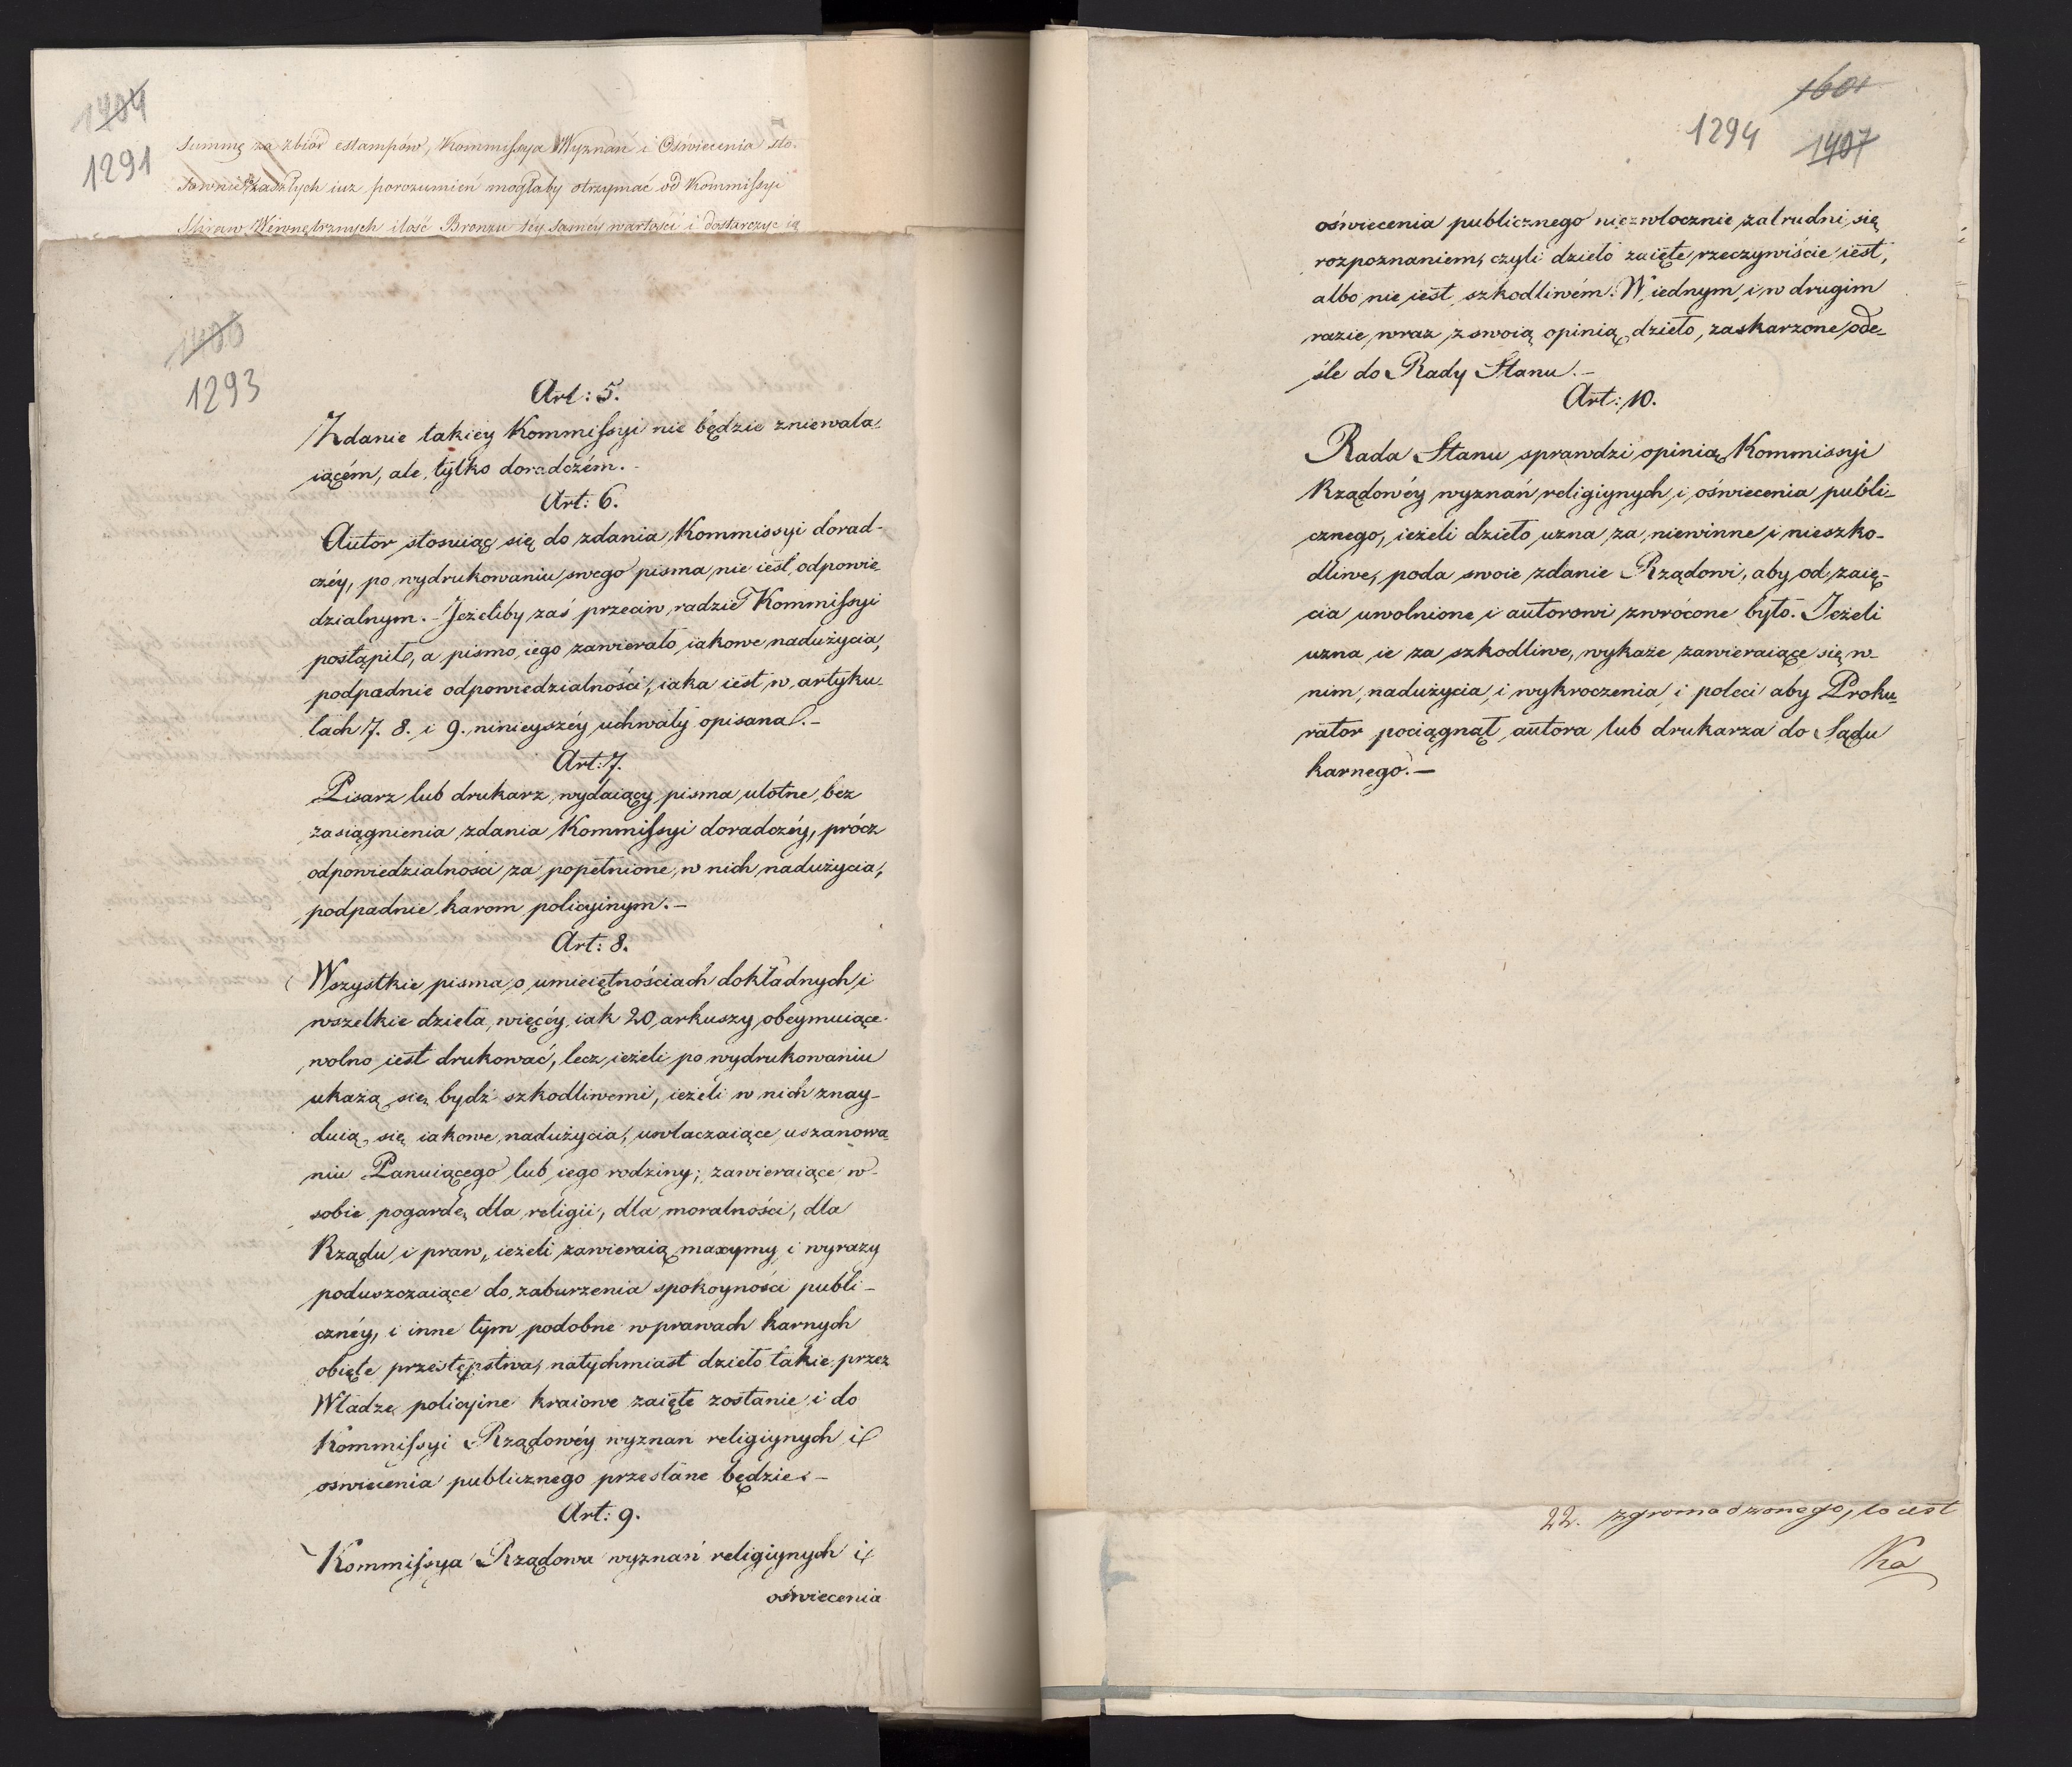 1404
1291
Summę za zbiór estampów, Kommissya Wyznań i Oświecenia sto-
sownie zaszłych iuz porozumień mogłaby otrzymać od Kommissyi
Spraw Wewnętrznych ilość Bronzu téy saméy wartości i dostarczyć ią
1406
1293
Art: 5.
Zdanie takiey Kommissyi nie będzie zniewala-
iącém, ale tylko doradczém.
Art: 6.
Autor stosuiąc się do zdania Kommissyi dorad-
czéy, po wydrukowaniu swego pisma nie iest odpowie-
dzialnym. - Jeżeliby zaś przeciw radzie Kommissyi
postąpił, a pismo iego zawierało iakowe nadużycia,
podpadnie odpowiedzialności, iaka iest w artyku-
łach 7. 8. i 9. ninieyszéy uchwały opisana. -
Art: 7.
Pisarz lub drukarz wydaiący pisma ulotne, bez
zasiągnienia zdania Kommissyi doradczéy, prócz
odpowiedzialności za popełnione w nich nadużycia,
podpadnie karom policyinym. -
Art: 8.
Wszystkie pisma o umieiętnościach dokładnych i
wszelkie dzieła więcéy iak 20 arkuszy obeymuiące
wolno iest drukować, lecz ieżeli po wydrukowaniu
ukażą się bydź szkodliwemi, ieżeli w nich znay-
duią się iakowe nadużycia, uwłaczaiące uszanowa-
niu Panuiącego lub iego rodziny; zawieraiące w-
sobie pogardę dla religii, dla moralności, dla
Rządu i praw, ieżeli zawieraią maxymy i wyrazy
poduszczaiące do zaburzenia spokoyności publi-
cznéy, i inne tym podobne w prawach karnych
obięte przestępstwa, natychmiast dzieło takie przez
Władze policyine kraiowe zaięte zostanie i do
Kommissyi Rządowéy wyznań religiynych i
oswiecenia publicznego przesłane będzie. -
Art: 9.
Kommissya Rządowa wyznań religiynych i
oświecenia
1294
1407
oświecenia publicznego niezwłocznie zatrudni się
rozpoznaniem, czyli dzieło zaięte rzeczywiście iest,
albo nie iest szkodliwém. W iednym i w drugim
razie wraz z swoią opinią dzieło zaskarzone ode-
śle do Rady Stanu. -
Art: 10.
Rada Stanu sprawdzi opinią Kommissyi
Rządowéy wyznań religiynych i oświecenia publi-
cznego, ieżeli dzieło uzna za niewinne i nieszko-
dliwe, poda swoie zdanie Rządowi, aby od zaię-
cia uwolnione i autorowi zwrócone było. Jeżeli
uzna ie za szkodliwe, wykaże zawieraiące się w-
nim nadużycia i wykroczenia i poleci aby Proku-
rator pociągnął autora lub drukarza do Sądu
karnego. -
22. zgromadzonego, to iest
Ka